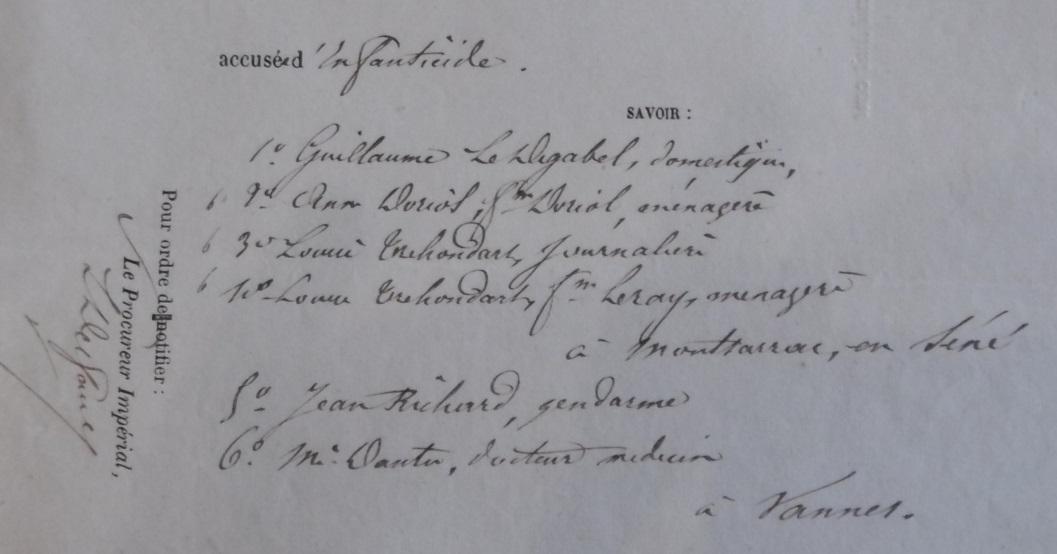 accusée d'infanticide.
SAVOIR :
1º Guillaume Le Digabel, domestique,
6 2º Anne Doriol, fme Doriol, ménagère
6 3º Louise Trehondart, journalière
6 4º Louise Trehondart, fme Leray, ménagère
à Montsarrac, en Séné
5º Jean Richard, gendarme
6º Mr Dantu, docteur médecin
à Vannes.
Pour ordre de notifier :
Le Procureur Impérial,